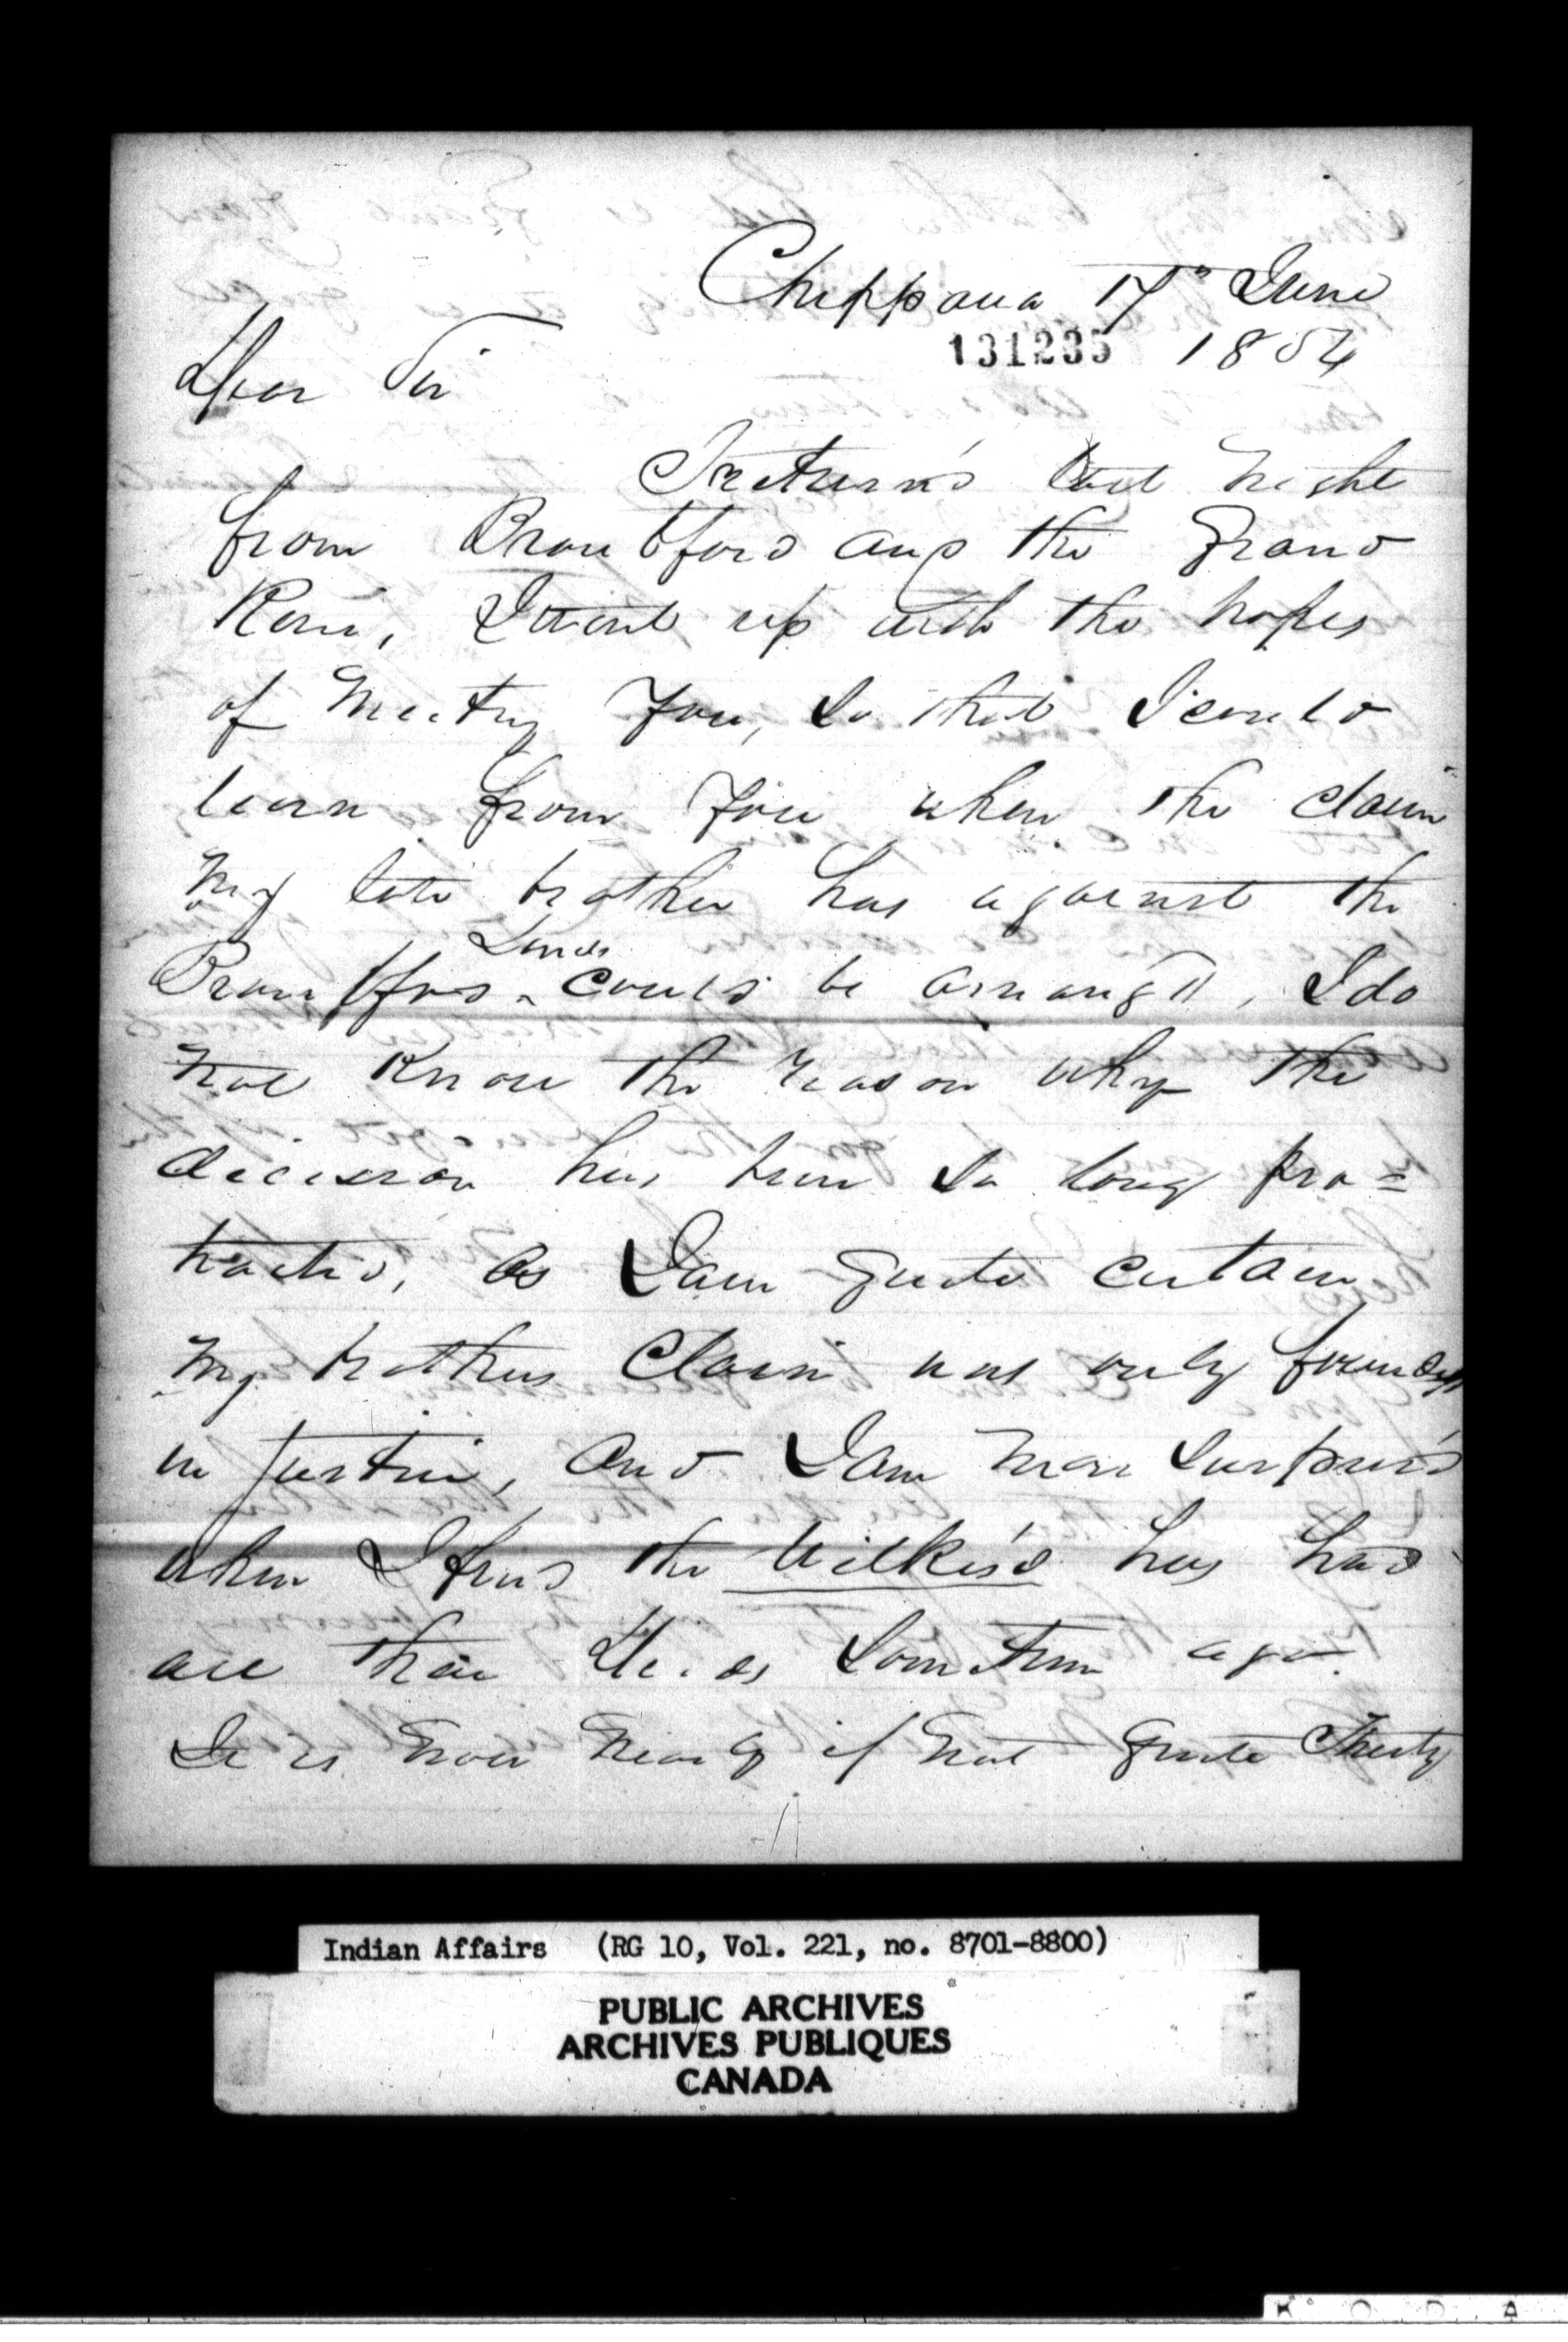 Chippawa 17th June
131235 1854
Dear Sir
I return'd last night
from Brantford and the Grand
River, I went up with the hopes
of meeting you, so that I could
learn from you when the claim
my late brother has against the
Lands
Brantford could be arranged, I do
not know the reason why the
decision has been so long pro=
tracted, as I am quite certain
my brothers claim was only founded
in justice, and I am more surpris'd
when I find the Wilkes's has had
all their Deeds some time ago.
It is now nearly if not quite Thirty
Indian Affairs (RG 10, Vol. 221, no. 8701-8800)
PUBLIC ARCHIVES
ARCHIVES PUBLIQUES
CANADA